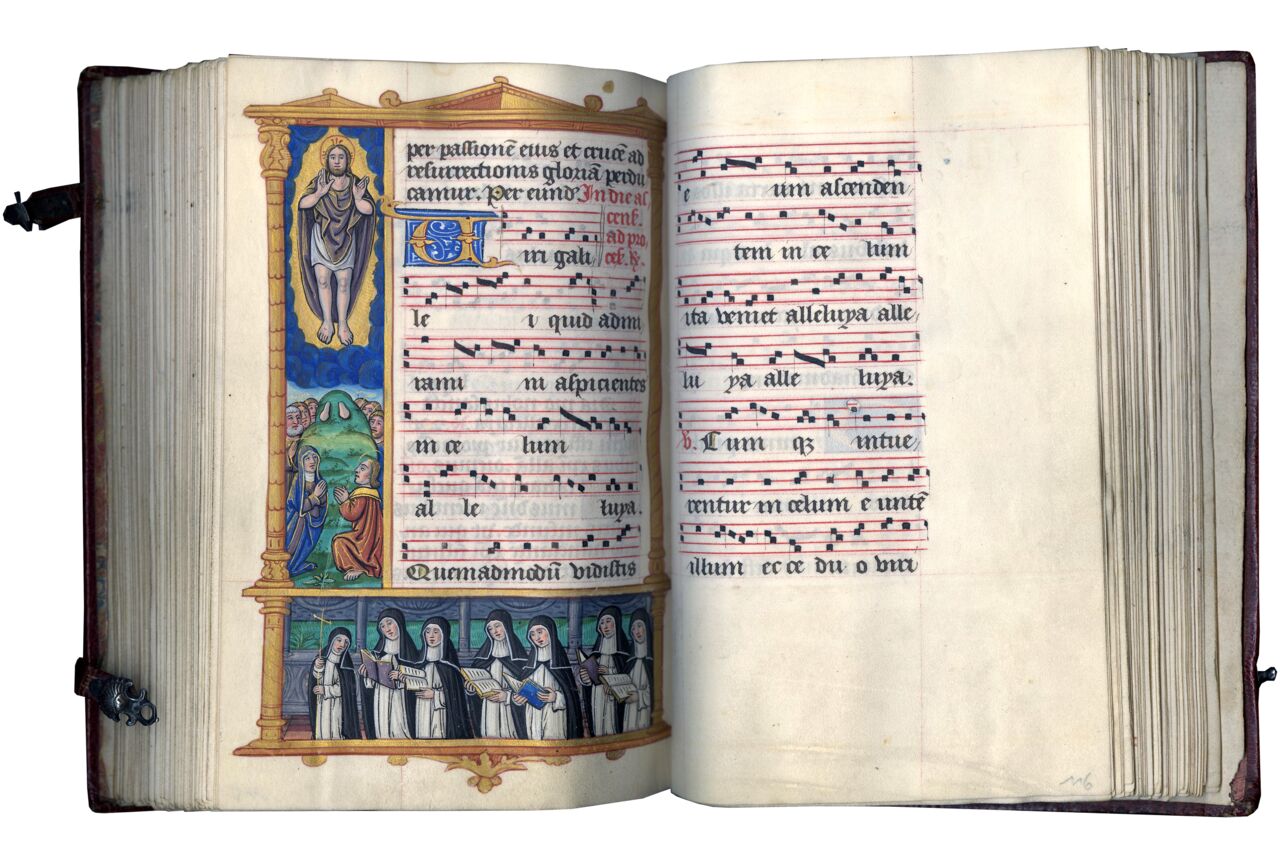 per passionē eius et crucē ad
resurrectionis gloriā perdu
camur. Per eund. In die as
cenſ.
ad pro
ceſ. ℞.
Viri gali
le i quid admi
rami ni aspicientes
in ce lum
al le luya.
Quemadmodū vidistis
e um ascenden
tem in ce lum
ita veniet alleluya alle
lu ya alle luya.
℣. Cum qꝫ intue
rentur in celum e untē
illum ec ce du o viri
116